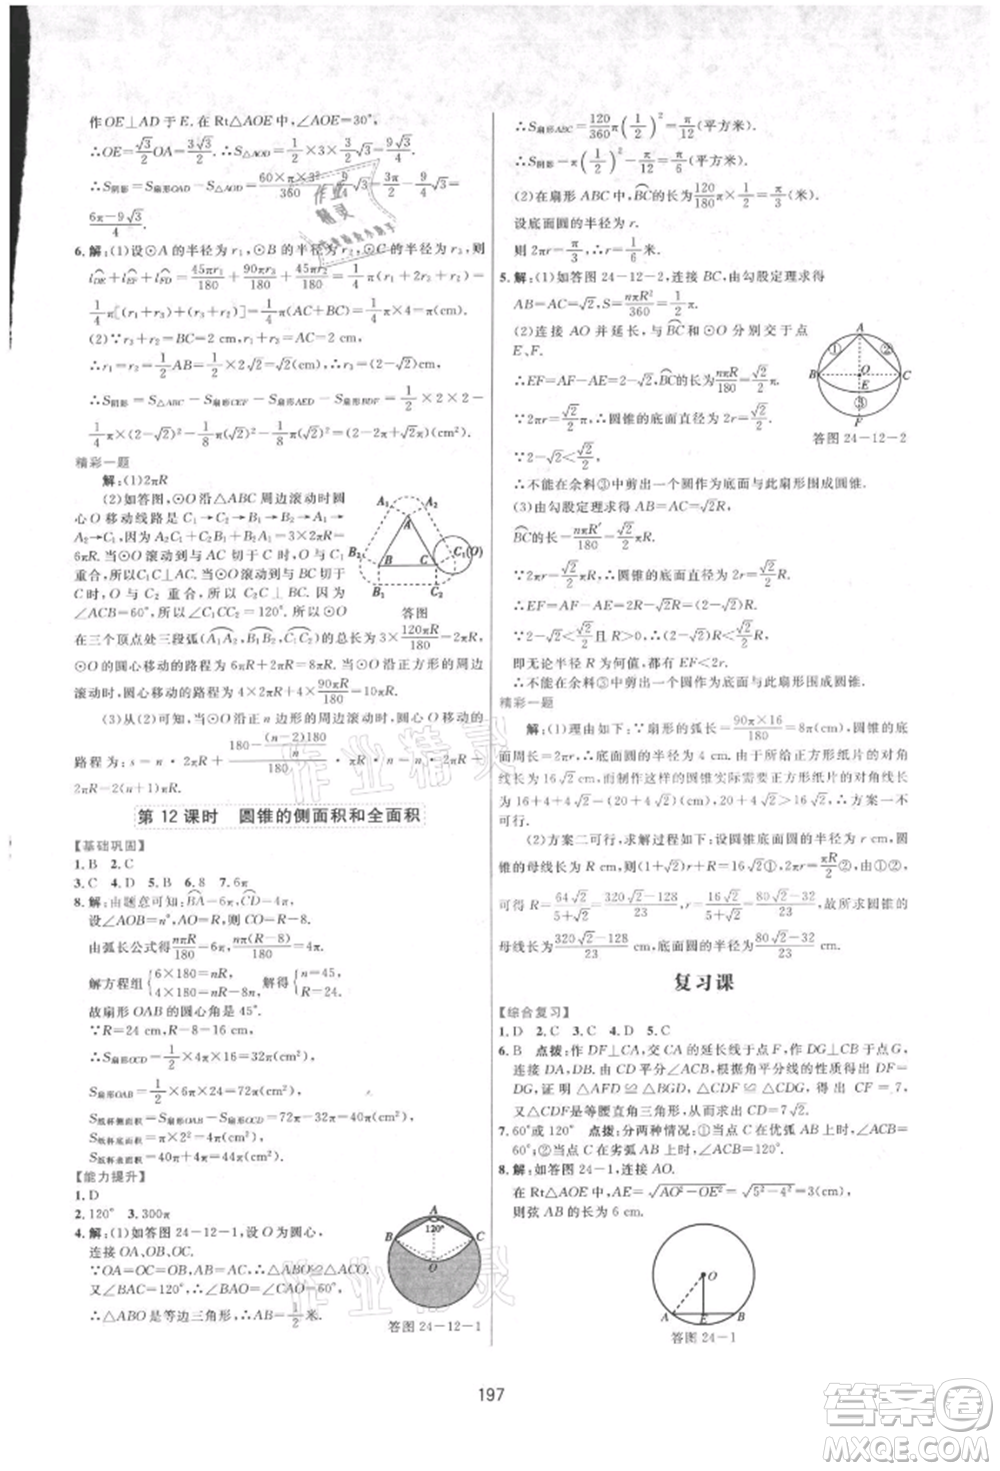 作OE⊥AD于E.在Rt△AOE中,∠AOE=30°,
∴OE=√3/2OA=3√3/2.∴S△AOD=1/2×3×3√3/2=9√3/4.
∴S阴影=S扇形OAD-S△AOD=60×π×3²/360-9√3/4=3π/2-9√3/4=
6π-9√3/4.
6.解:(1)设⊙A的半径为r₁,⊙B的半径为r₂,⊙C的半径为r₃,则
l DE+l EF+l FD=45πr₁/180+45πr₂/180+90πr₃/180=1/4π(r₁+r₂+2r₃)=
1/4π[(r₁+r₃)+(r₂+r₃)]=1/4π(AC+BC)=1/4π×4=π(cm)
(2)∵r₁+r₃=AC=2,r₂+r₃=BC=2,
∴r₁=r₂=1/2AB=1/2×2√2=√2(cm),r₃=(2-√2)(cm).
∴S阴影=S△ABC-S扇形CEF-S扇形AED-S扇形BDF=1/2×2×2-
1/4π×(2-√2)²-1/8π(√2)²-1/8π(√2)²=2-2π+√2π(cm²).
精彩一题
解:(1)2πR
(2)如答图,⊙O沿△ABC周边滚动时圆
心O移动线路是C₁→C₂→B₁→B₂→A₁→
A₂→C₁,⊙O滚动一周B₁B₂=A₁A₂=3×2πR=
6πR(cm).当⊙O滚动到与C₁
重合,所以C₁C⊥AC.当⊙O滚动到与C₂
重合时,O与C₂重合,所以C₂C⊥BC.又
∠ACB=60°,所以∠C₁CC₂=120°.所以
A₁ A₂ A B₂ B C C₁(O) B₁ C₂
答图
在三个顶点处三段弧(A₁A₂,B₁B₂,C₁C₂)的总长为3×120πR/180=2πR,
⊙O的圆心移动的路程为6πR+2πR.当⊙O沿正方形的周边
滚动时,圆心移动的路程为4×2πR+4×90πR/180=8πR+2πR.
(3)从(2)可知,当⊙O沿正n边形的周边滚动时,圆心移动的
路程为:s=n·2πR+n·180-(n-2)180/n/180πR=n·2πR+
2πR=2πR(n+1).
第12课时 圆锥的侧面积和全面积
【基础巩固】
1.B 2.C
3.C 4.D 5.B 6.8 7.6π
8.解:由题意可知:BA=6π,CD=4π,
设∠AOB=n°,AO=R,则CO=R-8,
由弧长公式得nπR/180=6π,n π(R-8)/180=4π.
解方程组{6×180=nR 4×180=nR-8n 解得{n=45 R=24
故扇形OAB的圆心角是45°.
∵R=24 cm,∴R-8=16 cm.
∴S扇形OCD=1/2×4π×16=32π(cm²),
S扇形OAB=1/2×6π×24=72π(cm²),
S纸杯侧面积=S扇形OAB-S扇形OCD=72π-32π=40π(cm²),
S纸杯底面积=π·2²=4π(cm²)
S纸杯表面积=40π+4π=44π(cm²)
【能力提升】
1.D
2.120° 3.300π
4.解:(1)如答图24-12-1,设O为圆心,
连接OA、OB、OC.
∵OA=OC=OB,AB=AC,
又∠BAC=120°,∴∠BAO=∠CAO=60°,
∴△ABO是等边三角形,∴AB=1/2米.
A 120° B C O
答图24-12-1
∴S扇形ABC=120/360π(1/2)²=π/12(平方米).
∴S阴影=π(1/2)²-π/12=π/6(平方米).
(2)在扇形ABC中,BC的长为120/180π×1/2=π/3(米).
设底面圆的半径为r.
则2πr=π/3,∴r=1/6(米).
5.解:(1)如答图24-12-2,连接BC,由勾股定理求得
AB=AC=√2,S=nπR²/360=1/2π.
(2)连接AO并延长,与BC和⊙O分别交于点
E、F.
∴EF=AF-AE=2-√2,BC的长为nπR/180=√2/2π,
∵2πr=√2/2π,∴圆锥的底面直径为2r=√2/2.
∵2-√2<√2/2,
∴不能在余料③中剪出一个圆作为底面与此扇形围成圆锥.
A ① ② B O C E ③ F
答图24-12-2
(3)由勾股定理求得AB=AC=√2R,
BC的长=nπR′/180=√2/2πR,
∵2πr=√2/2πR,∴圆锥的底面直径为2r=√2/2R.
∴EF=AF-AE=2R-√2R=(2-√2)R.
∵2-√2<√2/2且R>0,∴(2-√2)R<√2/2R.
即无论半径R为何值,都有EF<2r.
∴不能在余料③中剪出一个圆作为底面与此扇形围成圆锥.
精彩一题
解:(1)理由如下:∵扇形的弧长=90π×16/180=8π(cm),圆锥的底
面周长=2πr,∴底面圆的半径为4 cm.由于所给正方形纸片的对角
线长为16√2 cm,而制作这样的圆锥实际需要正方形纸片的对角线长为
16+4+4√2=20+4√2(cm),20+4√2>16√2,∴方案一不
可行.
(2)方案二可行,求解过程如下:设圆锥底面圆的半径为r cm,圆
锥的母线长为R cm,则(1+√2)r+R=16√2①,2πr=πR/2②,由①②,
可得R=64√2/5+√2=320√2-128/23,r=16√2/5+√2=80√2-32/23.故所求圆锥的
母线长为320√2-128/23cm,底面圆的半径为80√2-32/23cm.
复习课
【综合复习】
1.D 2.C 3.C 4.D 5.C
6.B 点拨:作DF⊥CA,交CA的延长线于点F,作DG⊥CB于点
G,连接DA,DB.由∠ACD=∠BCD和角平分线的性质得出DF=
DG,证明△AFD≌△BGD、△CDF≌△CDG,得出CF=7,
又△CDF是等腰直角三角形,从而求出CD=7√2.
7.60°或120° 点拨:分两种情况:①当点C在优弧AB上,∠BCA=
60°;②当点C在劣弧AB上,∠BCA=120°.
8.解:如答图24-1,连接AO.
在Rt△AOE中,AE=√AO²-OE²=√5²-4²=3(cm),
则弦AB的长为6 cm.
O A E B
答图24-1
197
答案圈
MXQE.COM